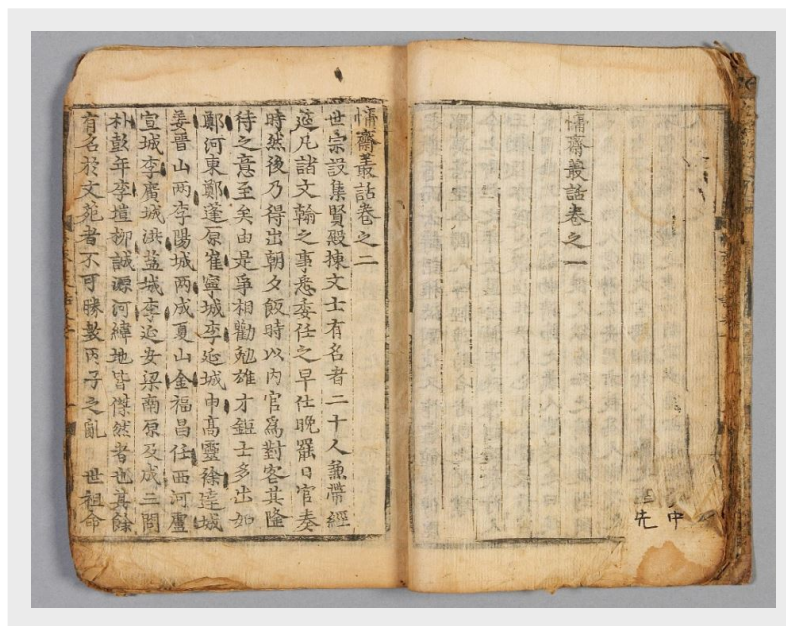 中
先
慵齋叢話卷之一
慵齋叢話卷之二
世宗設集賢殿揀文士有名者二十人兼帶經
筵凡諸文翰之事悉委任之早仕晚罷日官奏
時然後乃得出朝夕飯時以內官爲對客其隆
待之意至矣由是爭相勸勉雄才鉅士多出如
鄭河東鄭蓬原崔寧城李延城申高靈徐達城
姜晋山兩李陽城兩成夏山金福昌任西河盧
宣城李廣城洪益城李延安梁南原及成三問
朴彭年李塏柳誠源河緯地皆傑然者也其餘
有名於文苑者不可勝數丙子之亂　世祖命